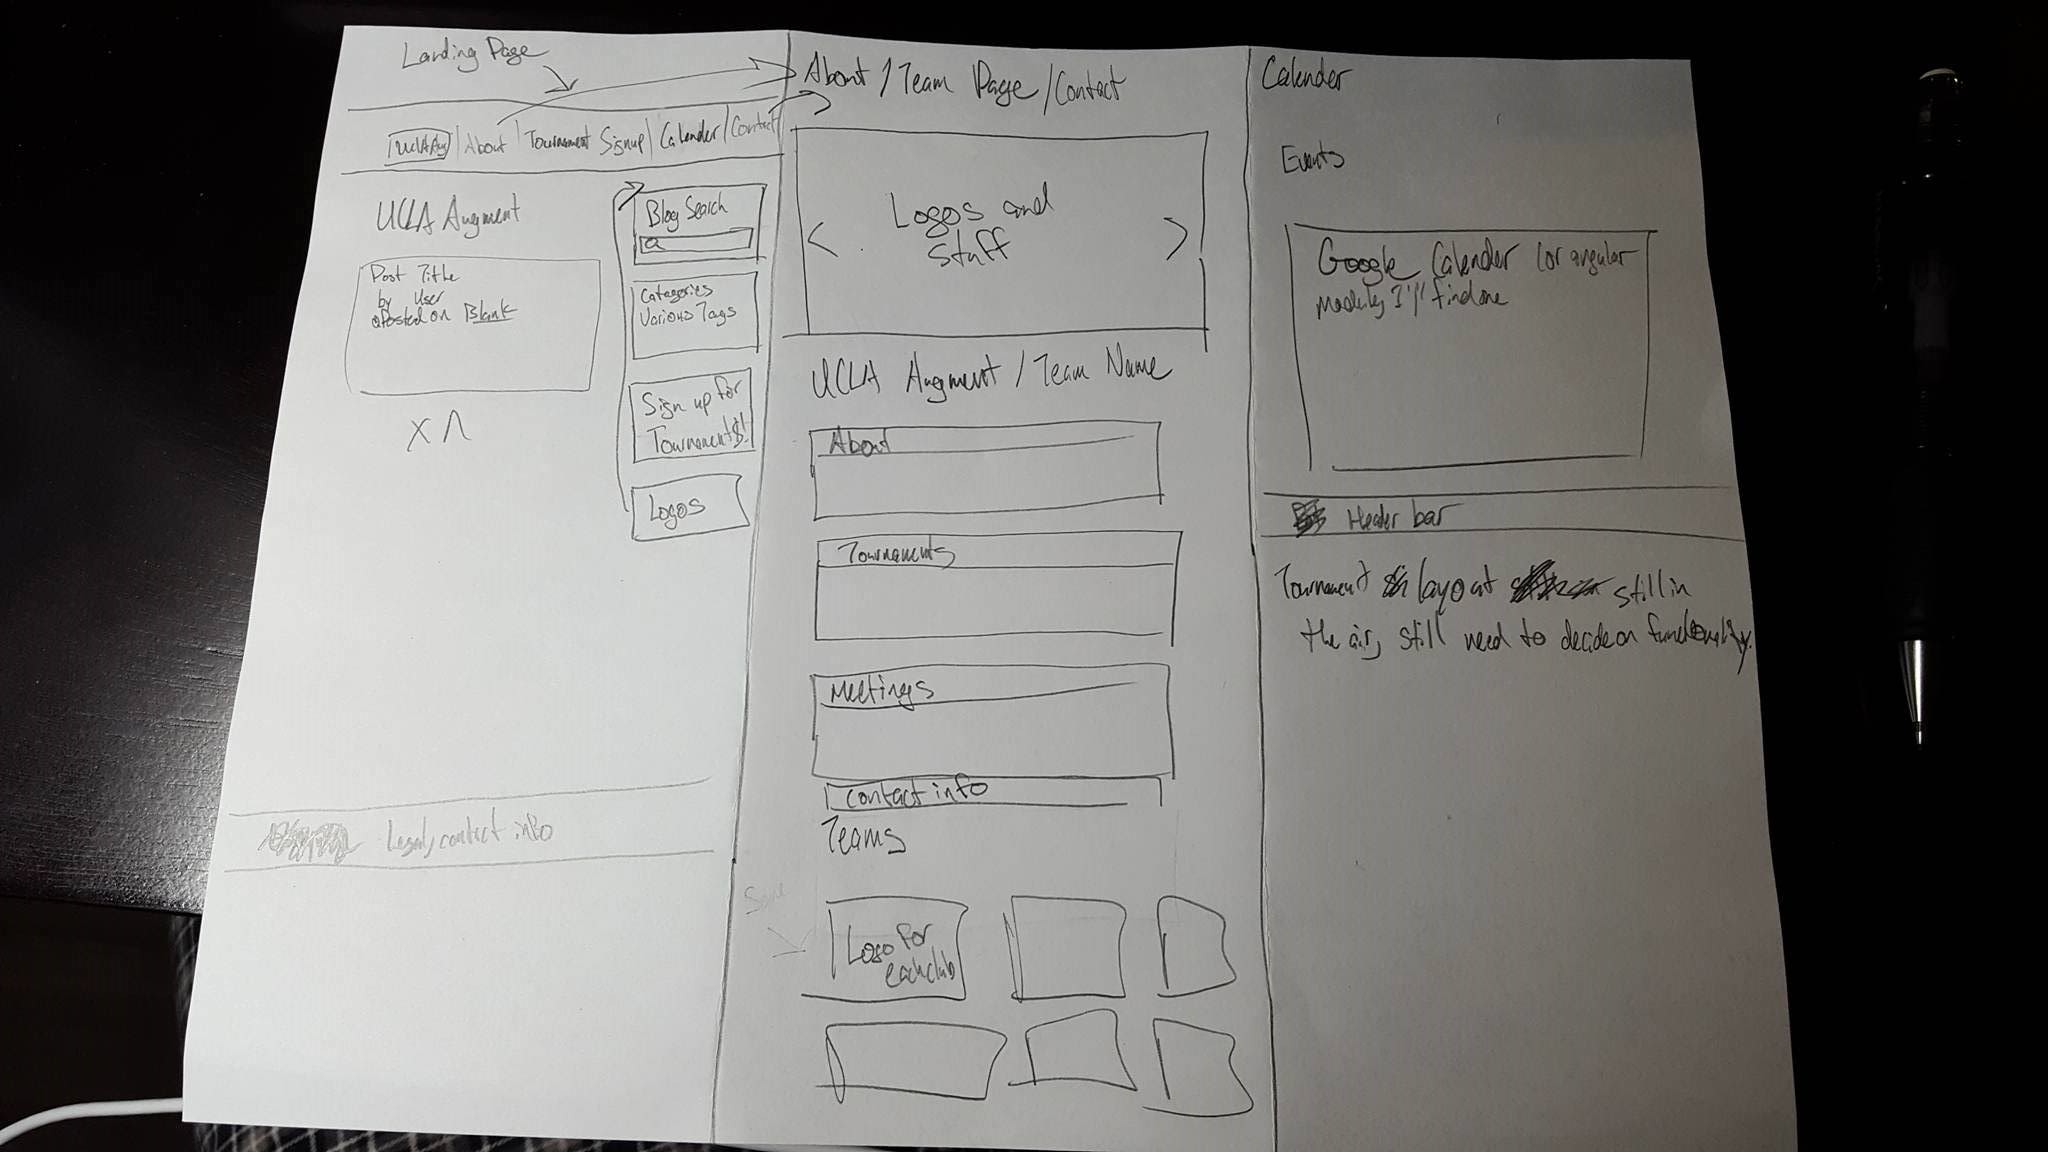 Landing Page
UCLA Aug | About | Tournament Signup | Calender | Contact
UCLA Augment
Post Title
by User
Posted on Blank
X Λ
Blog Search
Categories
Various Tags
Sign up for
Tournaments!
Logos
Legal, contact info
About / Team Page / Contact
< Logos and >
Stuff
UCLA Augment / Team Name
About
Tournaments
Meetings
Contact info
Teams
Logo for
each club
Calender
Events
Google Calender (or angular
module, I'll find one
Header bar
Tournament layout still in
the air, still need to decide on functionality.